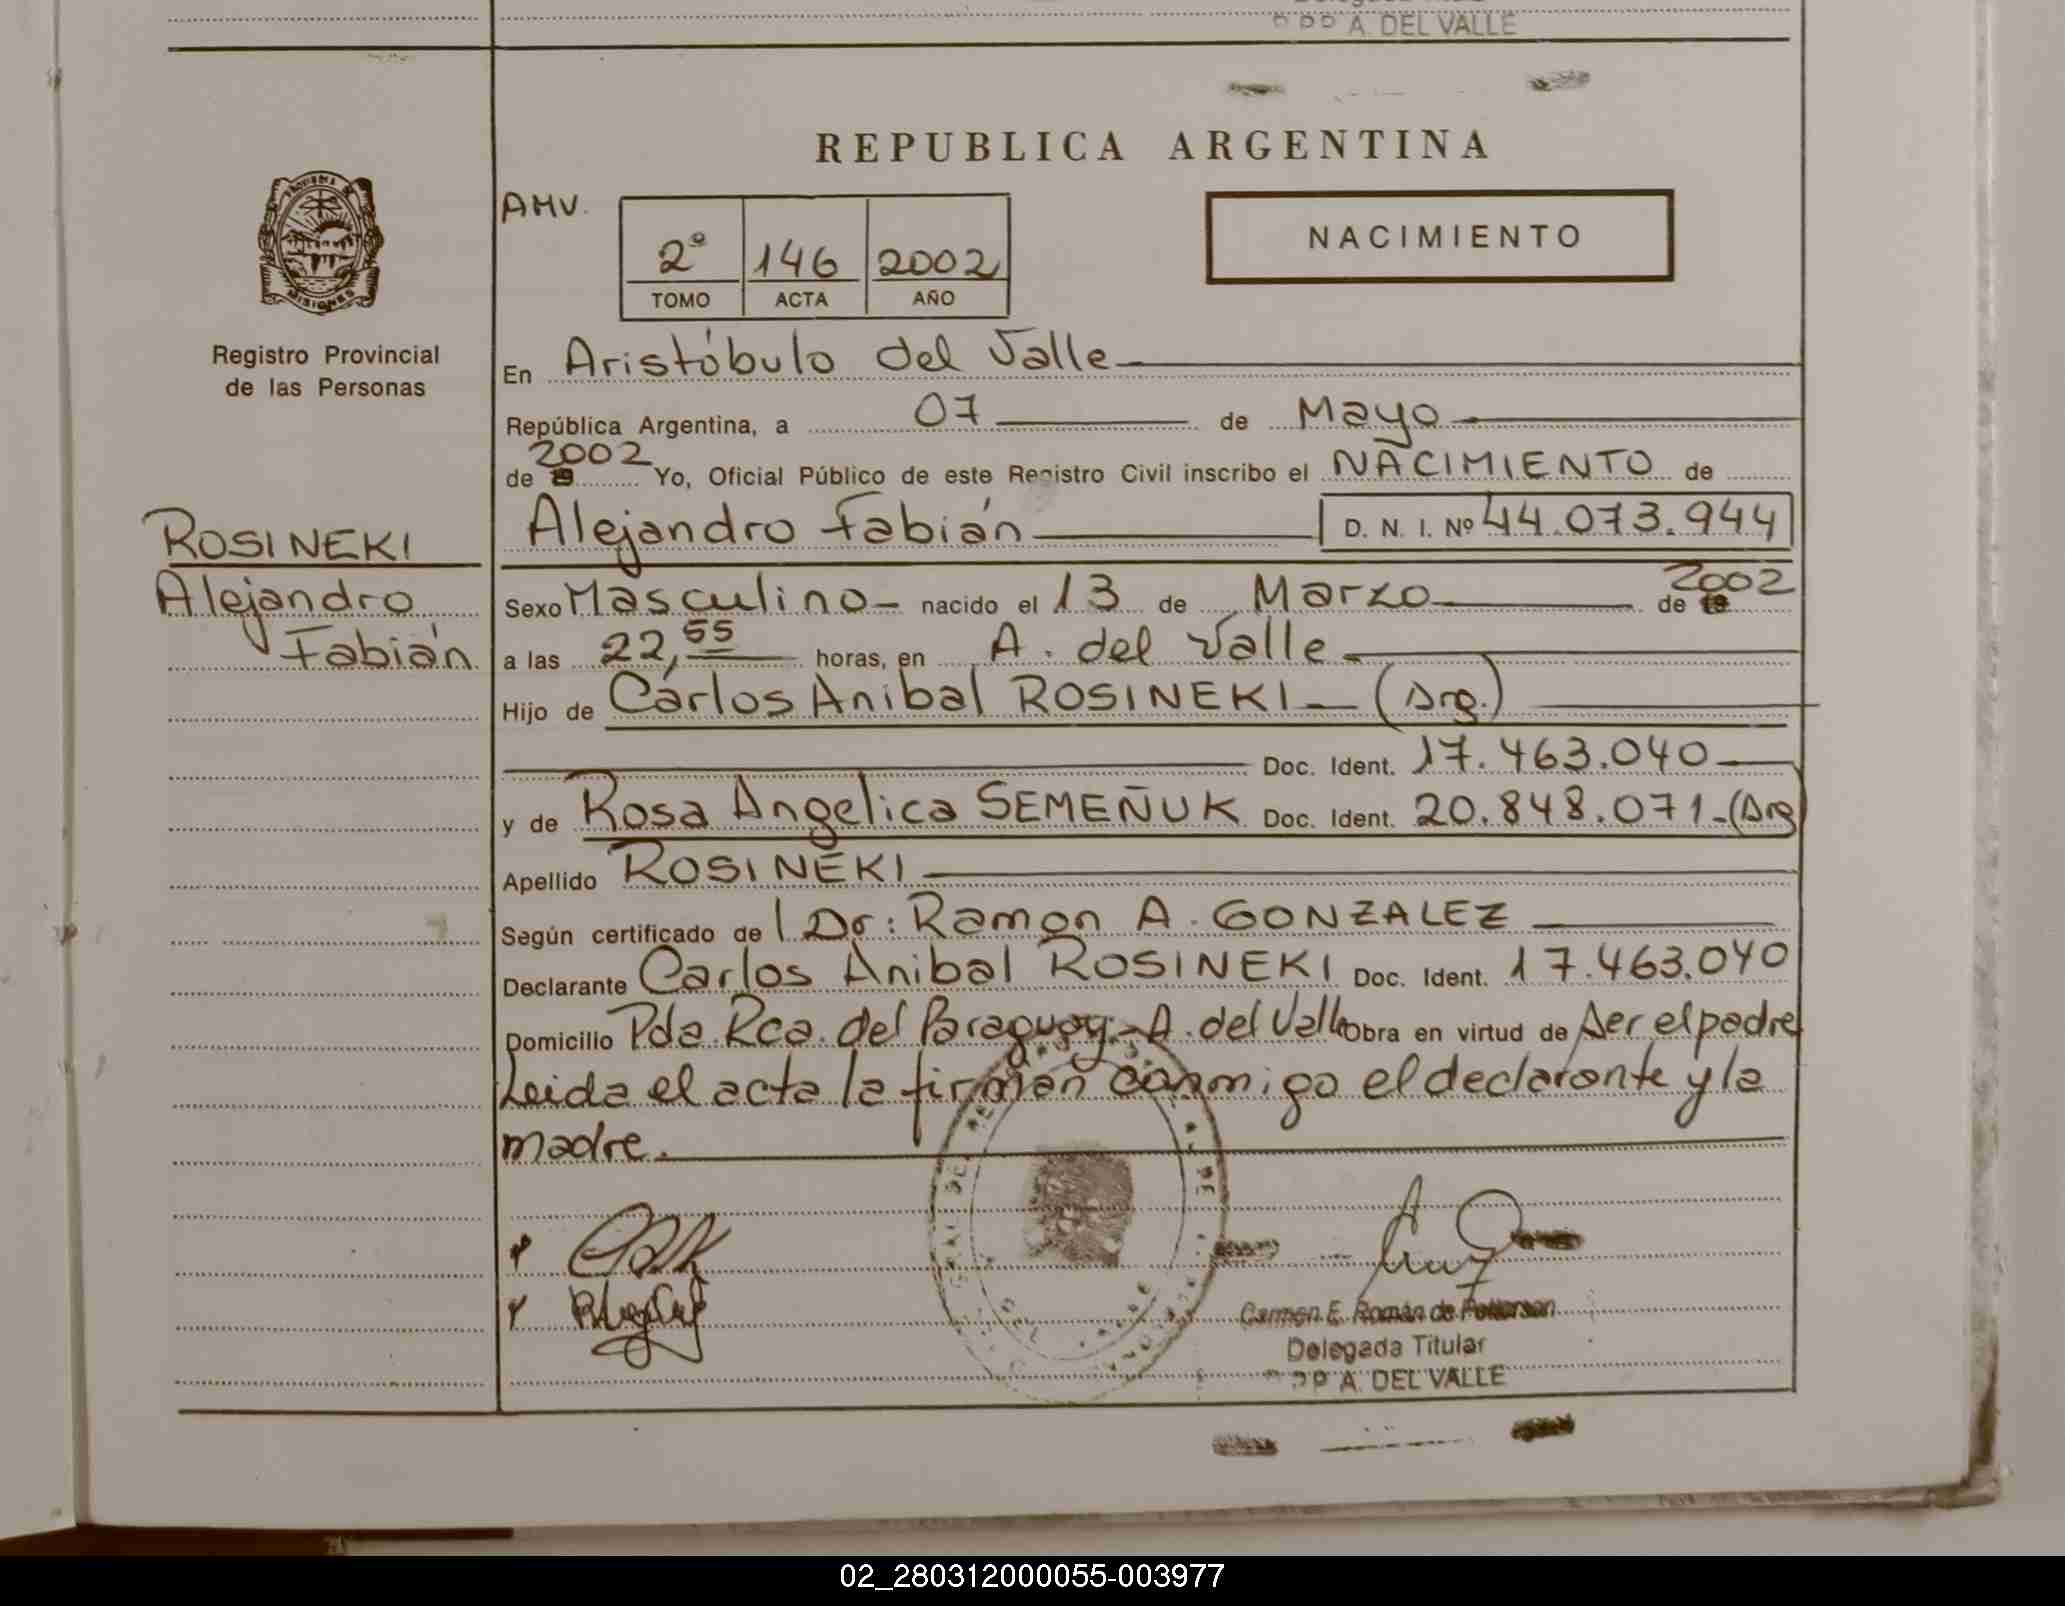 P P P A. DEL VALLE
REPUBLICA ARGENTINA
PROVINCIA DE
MISIONES
AMV.
2º 146 2002
TOMO ACTA AÑO
NACIMIENTO
Registro Provincial
de las Personas
En Aristóbulo del Valle
República Argentina, a 07 de Mayo
de 2002 Yo, Oficial Público de este Registro Civil inscribo el NACIMIENTO de
Alejandro Fabián D. N. I. Nº 44.073.944
ROSINEKI
Alejandro
Fabián
Sexo Masculino nacido el 13 de Marzo de 2002
a las 22,55 horas, en A. del Valle
Hijo de Carlos Anibal ROSINEKI (Arg.)
Doc. Ident. 17.463.040
y de Rosa Angelica SEMEÑUK Doc. Ident. 20.848.071 (Arg)
Apellido ROSINEKI
Según certificado de l Dr: Ramon A. GONZALEZ
Declarante Carlos Anibal ROSINEKI Doc. Ident. 17.463.040
Domicilio Pda. Rca. del Paraguay - A. del Valle Obra en virtud de ser el padre
Leida el acta la firman conmigo el declarante y la
madre.
Carmen E. Román de
Delegada Titular
P P A. DEL VALLE
02_280312000055-003977